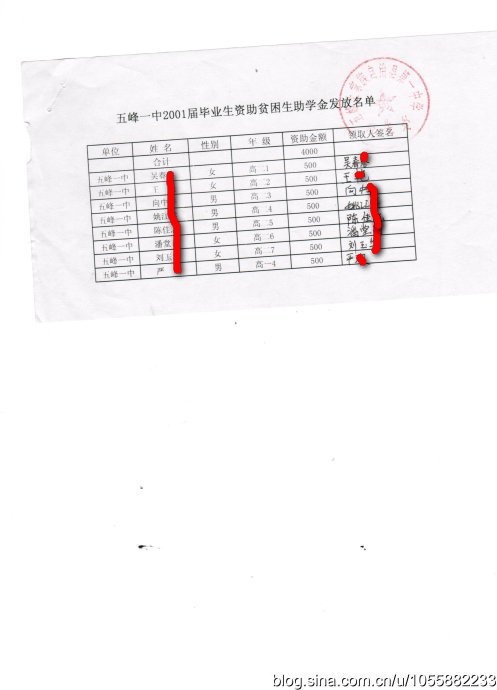 五峰一中2001届毕业生资助贫困生助学金发放名单
单位 姓名 性别 年级 资助金额 领取人签名
合计 4000
五峰一中 吴春 女 高二1 500 吴春
五峰一中 王 女 高二2 500 王
五峰一中 向中 男 高二3 500 向中
五峰一中 姚 男 高二4 500
五峰一中 陈佳 男 高二5 500 陈佳
五峰一中 潘堂 女 高二6 500 潘堂
五峰一中 刘玉 女 高二7 500 刘玉
五峰一中 严 男 高一4 500 严
blog.sina.com.cn/u/1055882233